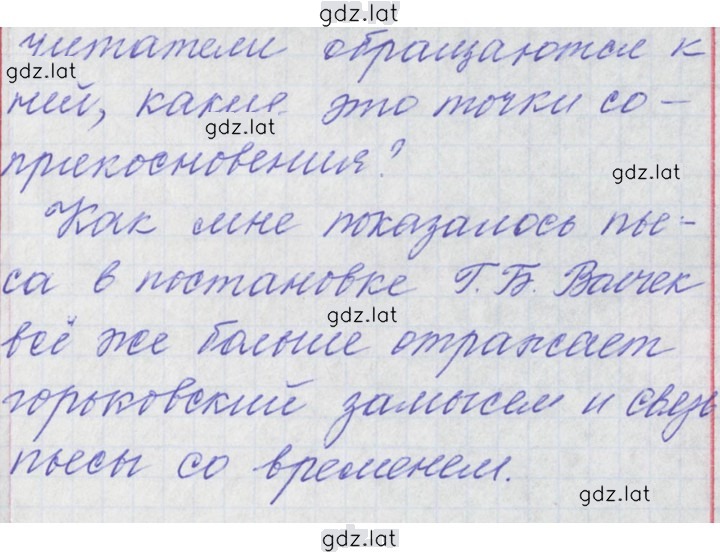 gdz.lat
читатели обращаются к
gdz.lat
ней, какие это точки со-
gdz.lat
прикосновения?
gdz.lat
Как мне показалось пье-
са в постановке Г.Б. Волчек
gdz.lat
всё же больше отражает
горьковский замысел и связь
пьесы со временем.
gdz.lat
gdz.lat